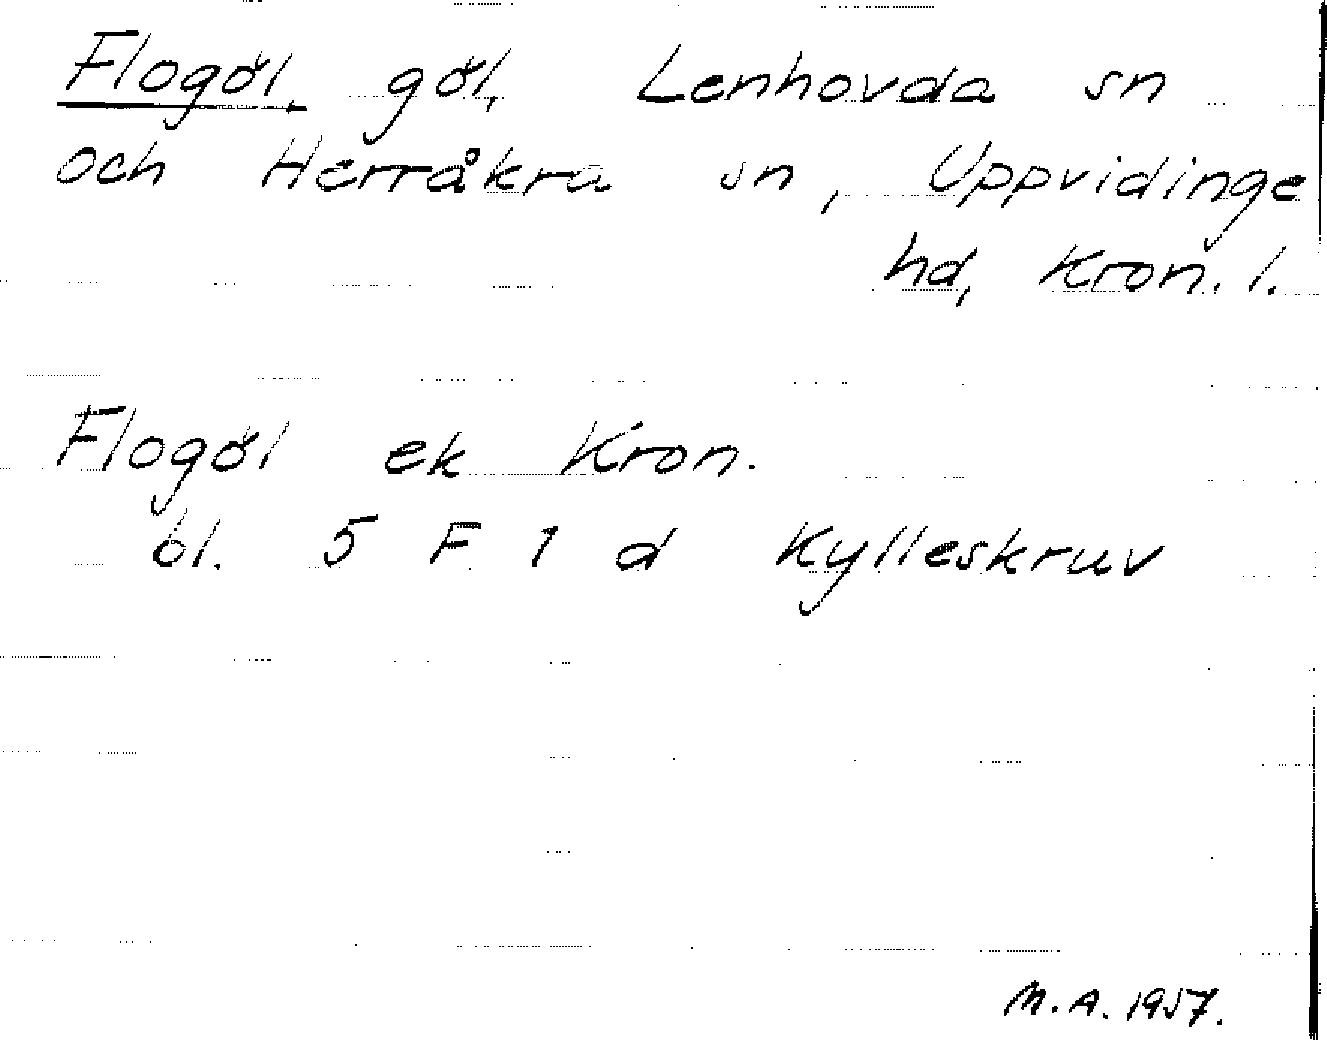 Flogöl, göl, Lenhovda sn
och Herråkra sn, Uppvidinge
hd, Kron. l.
Flogöl ek Kron.
bl. 5 F 1 d Kylleskruv
M.A. 1957.